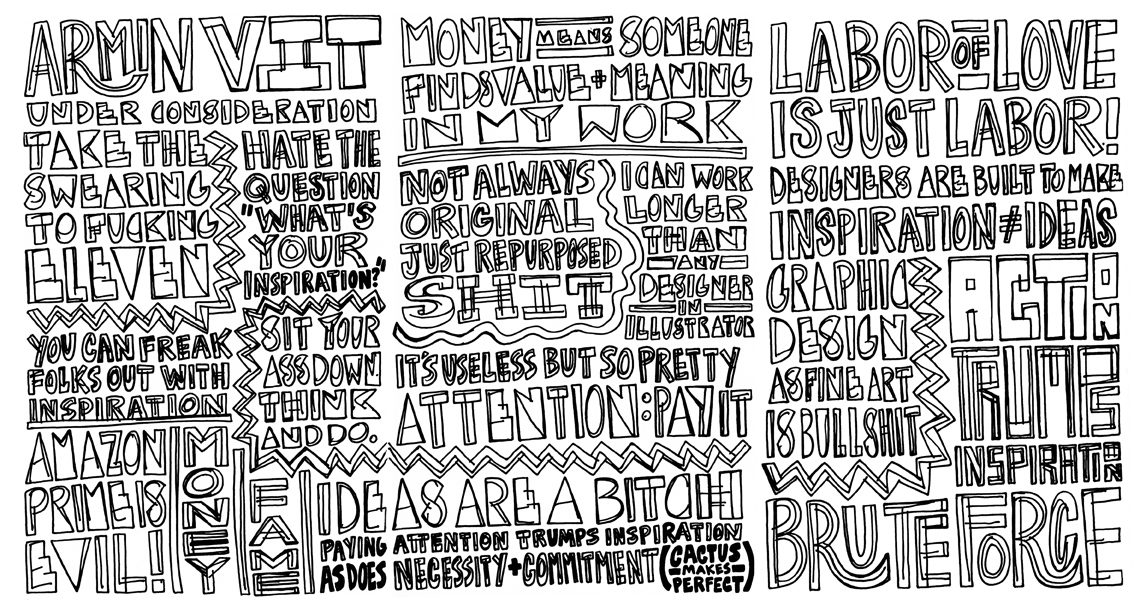 ARMIN VIT
UNDER CONSIDERATION
TAKE THE
SWEARING
TO FUCKING
ELEVEN
HATE THE
QUESTION
"WHAT'S
YOUR
INSPIRATION?"
YOU CAN FREAK
FOLKS OUT WITH
INSPIRATION
SIT YOUR
ASS DOWN
THINK
AND DO.
AMAZON
PRIME IS
EVIL!
MONEY
FAME
MONEY MEANS SOMEONE
FINDS VALUE + MEANING
IN MY WORK
NOT ALWAYS
ORIGINAL
JUST REPURPOSED
SHIT
I CAN WORK
LONGER
THAN
ANY
DESIGNER
IN
ILLUSTRATOR
IT'S USELESS BUT SO PRETTY
ATTENTION: PAY IT
IDEAS ARE A BITCH
PAYING ATTENTION TRUMPS INSPIRATION
AS DOES NECESSITY + COMMITMENT
(CACTUS
MAKES
PERFECT)
LABOR OF LOVE
IS JUST LABOR!
DESIGNERS ARE BUILT TO MAKE
INSPIRATION ≠ IDEAS
GRAPHIC
DESIGN
AS FINE ART
IS BULLSHIT
ACTION
TRUMPS
INSPIRATION
BRUTE FORCE